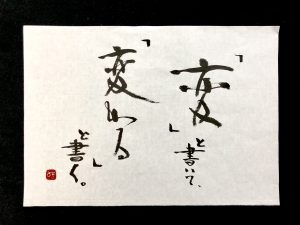 「変」
と書いて、
「変わる」
と書く。